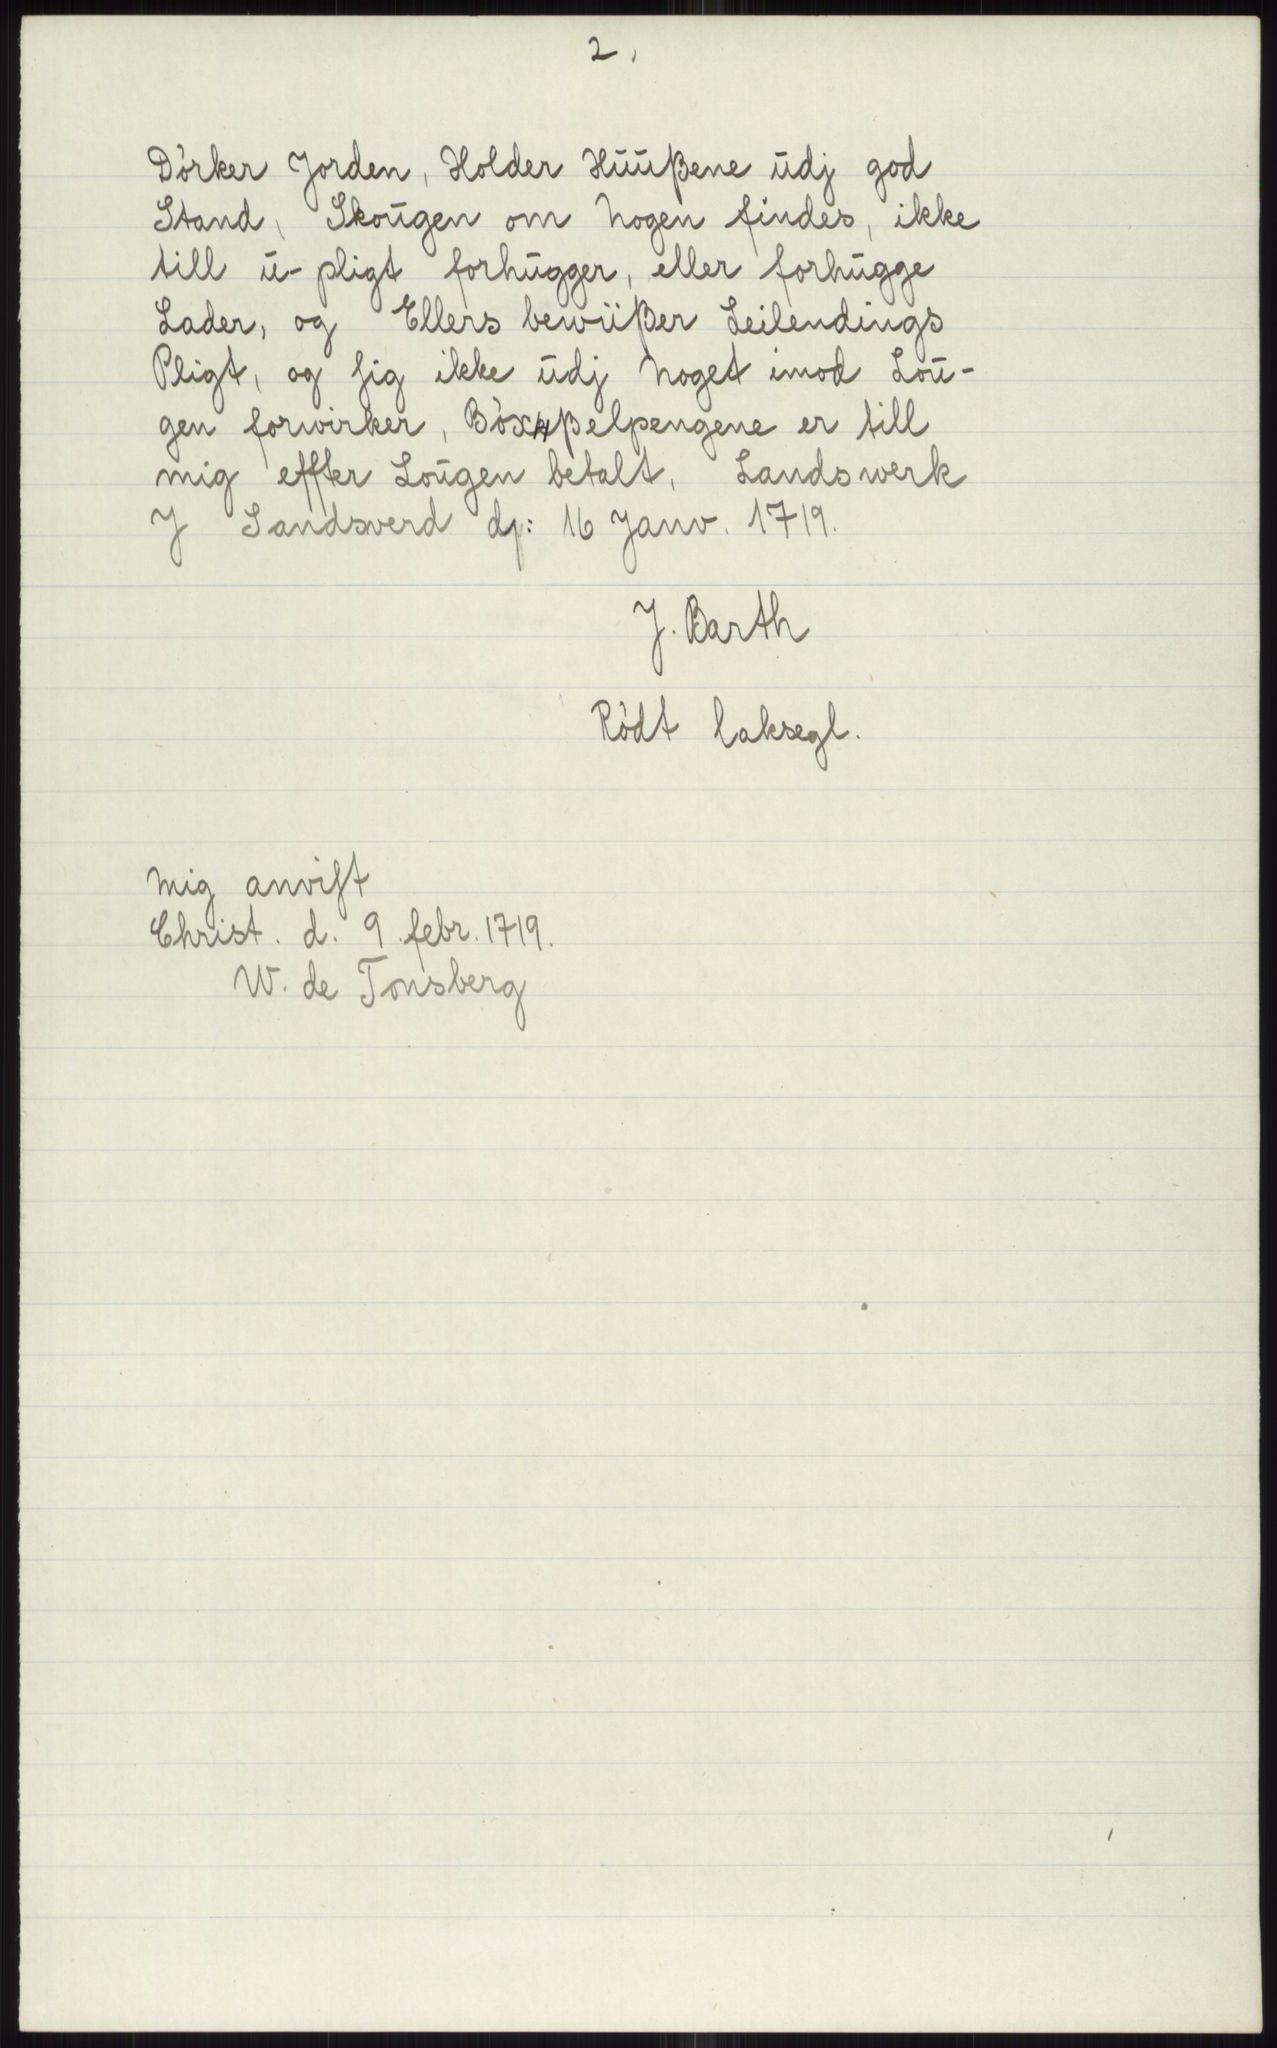 2.
Dörker Jorden, Holder Hūūßene ūdj god
Stand, Skoūgen om Nogen findes, ikke
till ū-pligt forhūgger, eller forhūgge
Lader, og Ellers bewüßer Leilendings
Pligt, og sig ikke ūdj Noget imod Loū-
gen forwirker, Böxßelpengene er till
mig effter Loūgen betalt. Landswerk
J Sandsverd dṇ: 16 Janv. 1719.
J. Barth
Rödt laksegl.
Mig anvist
Christ. d. 9. febr. 1719.
W. de Tonsberg